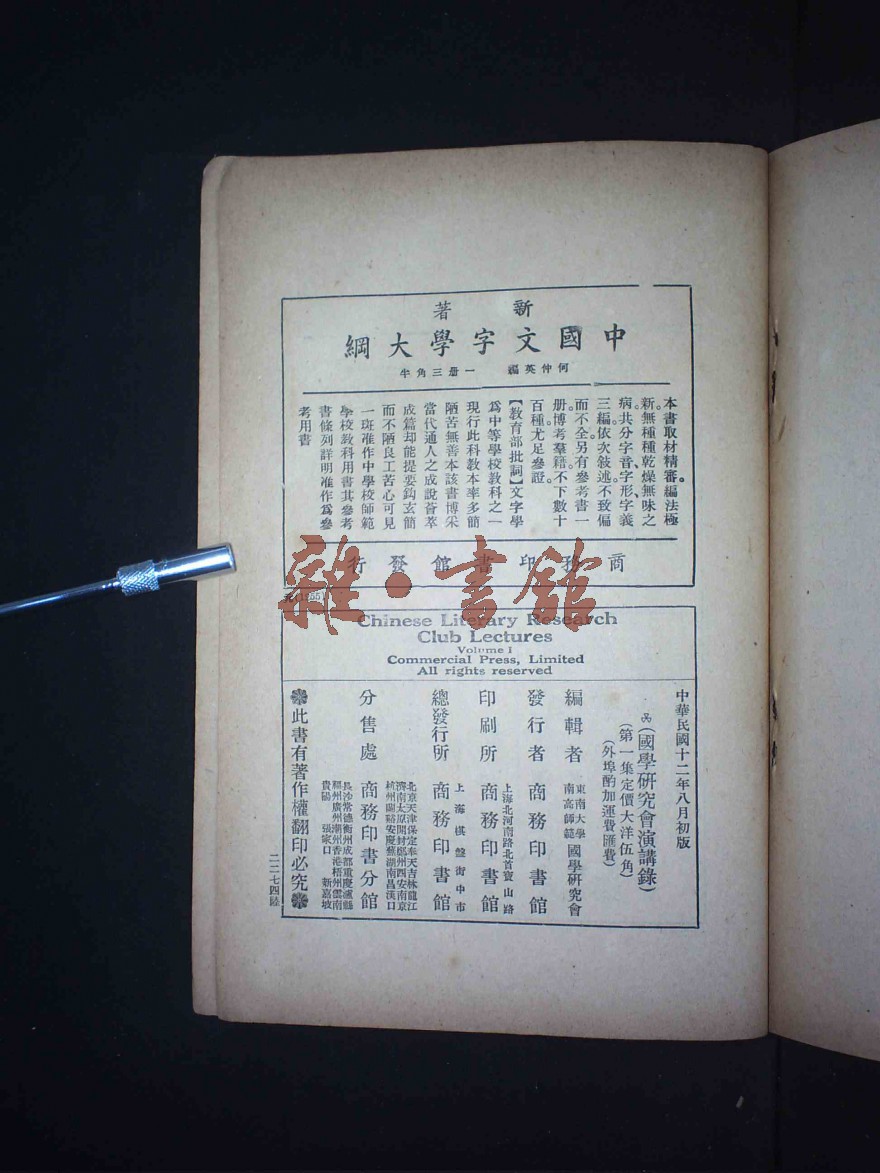 新著
中國文字學大綱
何仲英編 一册三角半
本書取材精審。編法極
新。無種種乾燥無味之
病。共分字音、字形、字義
三編。依次敍述。不致偏
而不全。另有參考書一
册。博考羣籍。不下數十
百種。尤足參證。
【教育部批詞】文字學
爲中等學校教科之一
現行此科教本率多簡
陋苦無善本該書博采
當代通人之成說薈萃
成篇却能提要鈎玄簡
而不陋良工苦心可見
一斑准作中學校師範
學校教科用書其參考
書條列詳明准作爲參
考用書
商務印書館發行
雜·書館
Chinese Literary Research
Club Lectures
Volume I
Commercial Press, Limited
All rights reserved
中華民國十二年八月初版
(國學研究會演講錄)
(第一集定價大洋伍角)
(外埠酌加運費匯費)
編輯者 東南大學 南高師範 國學研究會
發行者 商務印書館
印刷所 上海北河南路北首寶山路 商務印書館
總發行所 上海棋盤街中市 商務印書館
分售處 商務印書分館
北京天津保定奉天吉林龍江
濟南太原開封鄭州西安南京
杭州蘭谿安慶蕪湖南昌漢口
長沙常德衡州成都重慶瀘縣
福州廣州潮州香港梧州雲南
貴陽 張家口 新嘉坡
此書有著作權翻印必究
二二七四陸